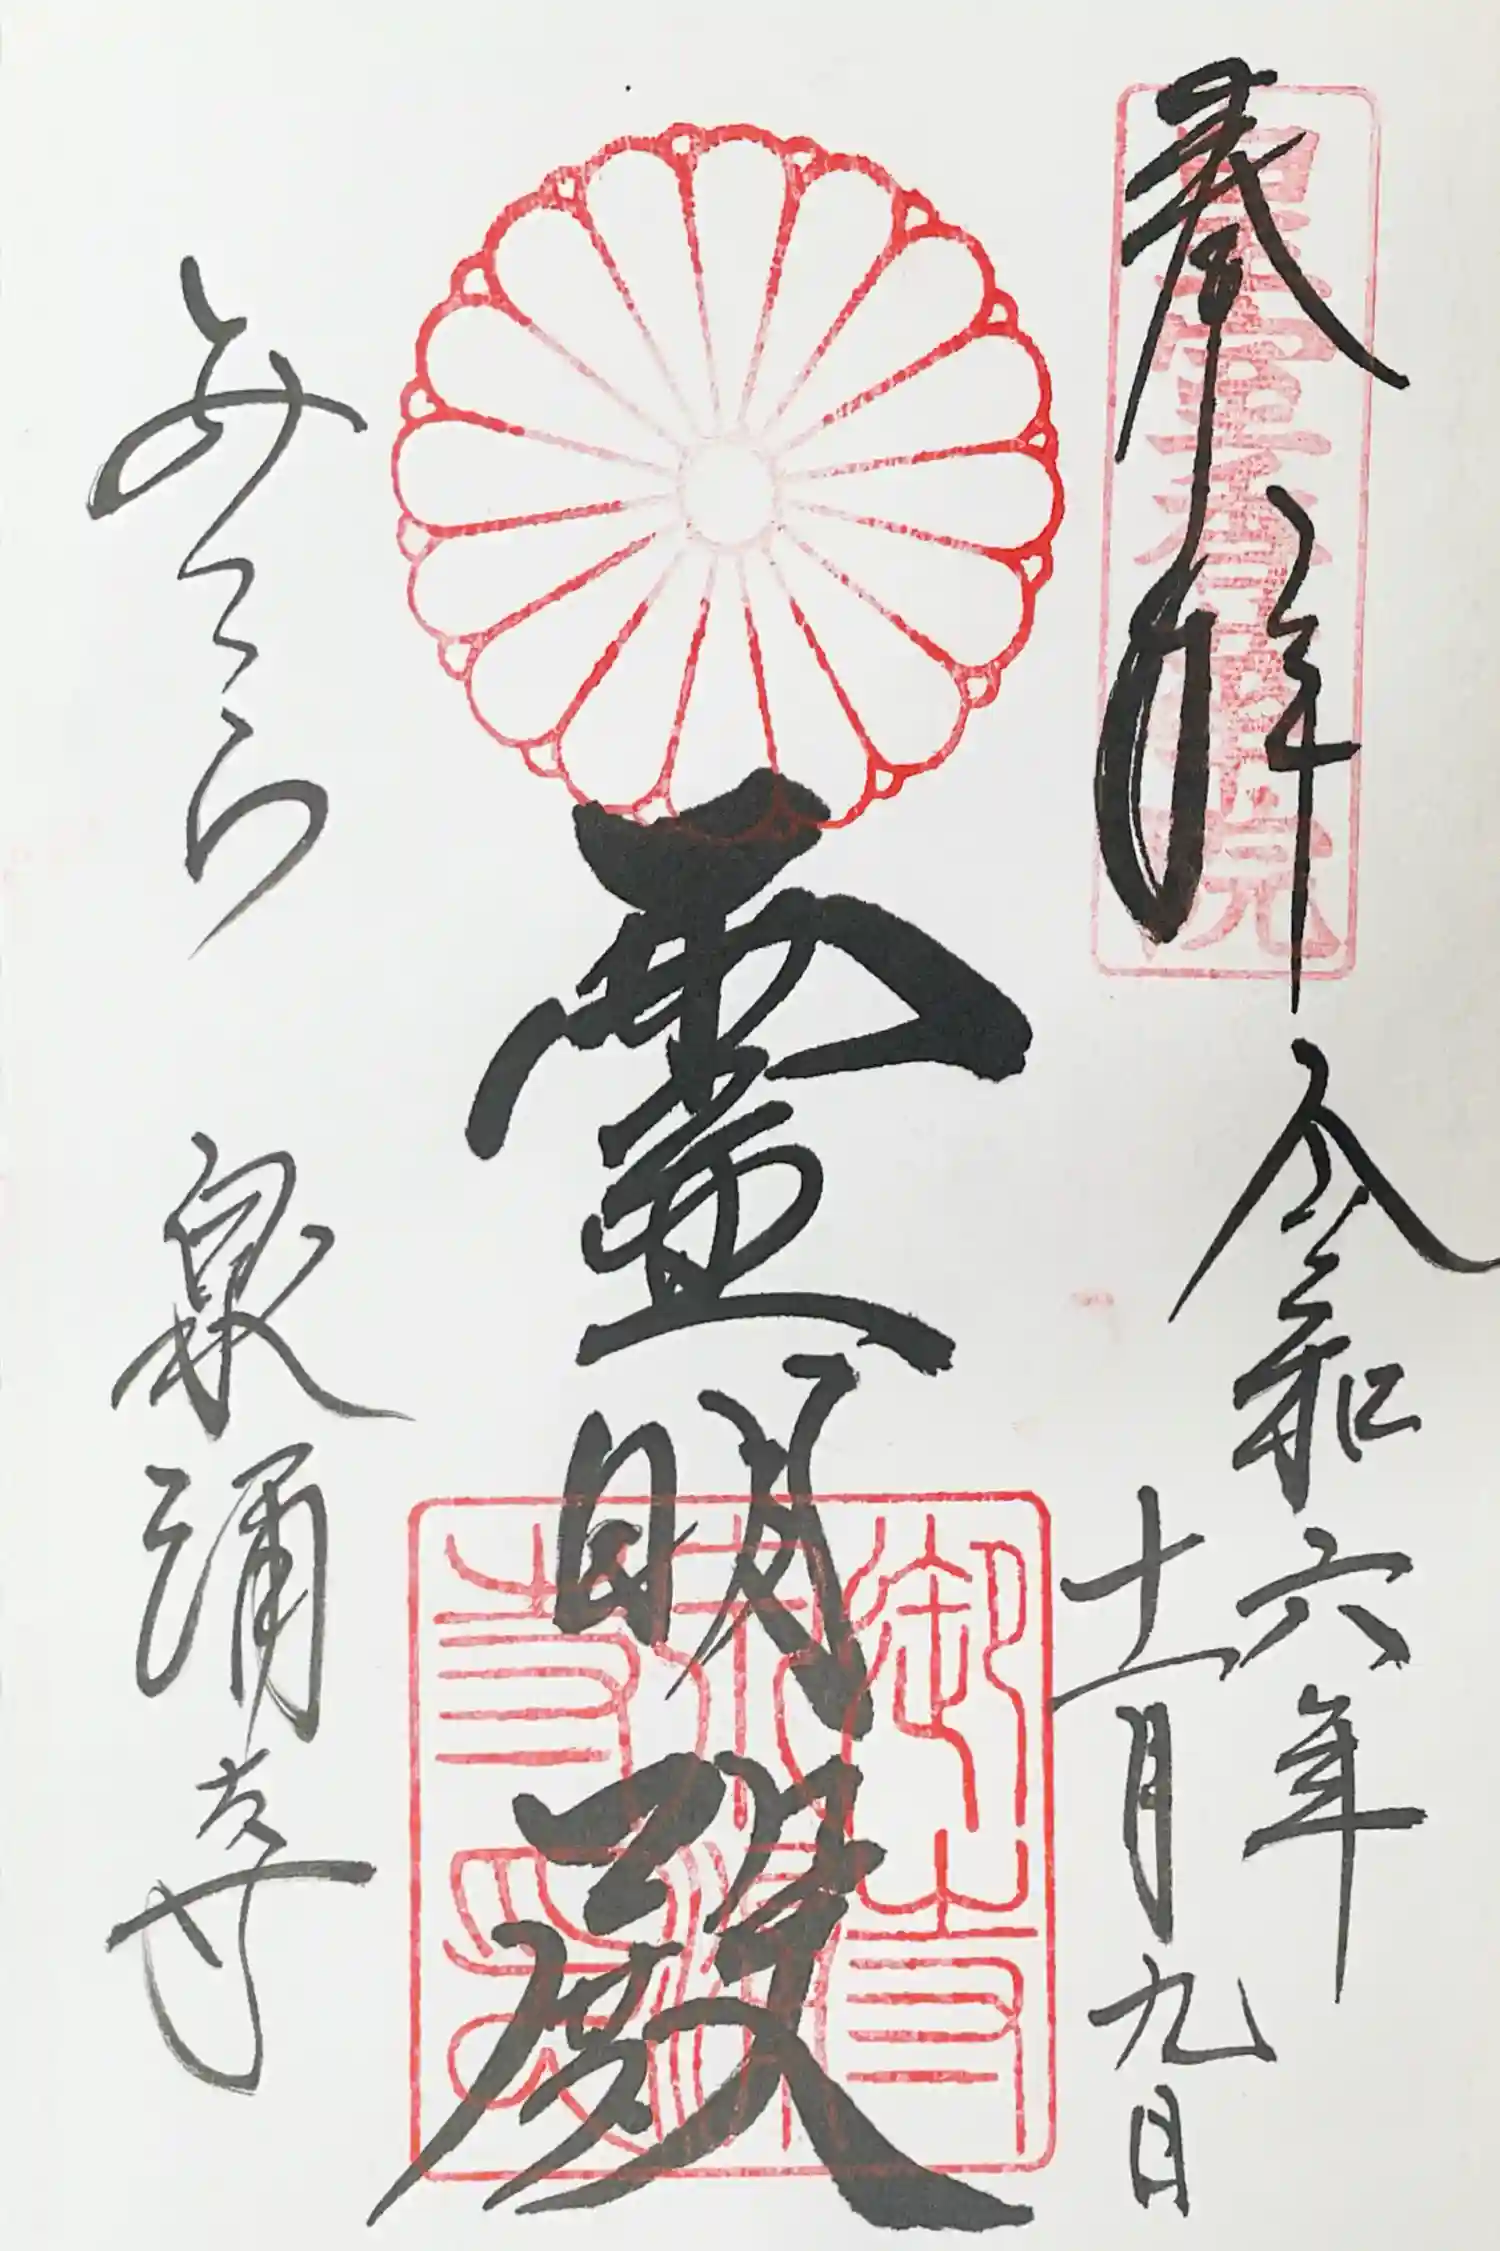 奉拝
皇室香華院
令和六年
十一月九日
霊明殿
御寺泉涌寺
みてら
泉涌寺